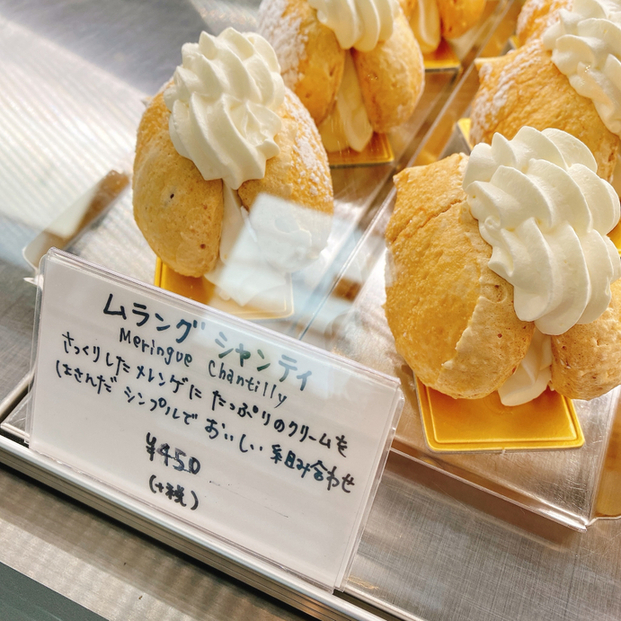 ムラング シャンティ
Meringue Chantilly
さっくりしたメレンゲに たっぷりのクリームを
はさんだ シンプルで おいしい 組み合わせ
¥450
(+税)